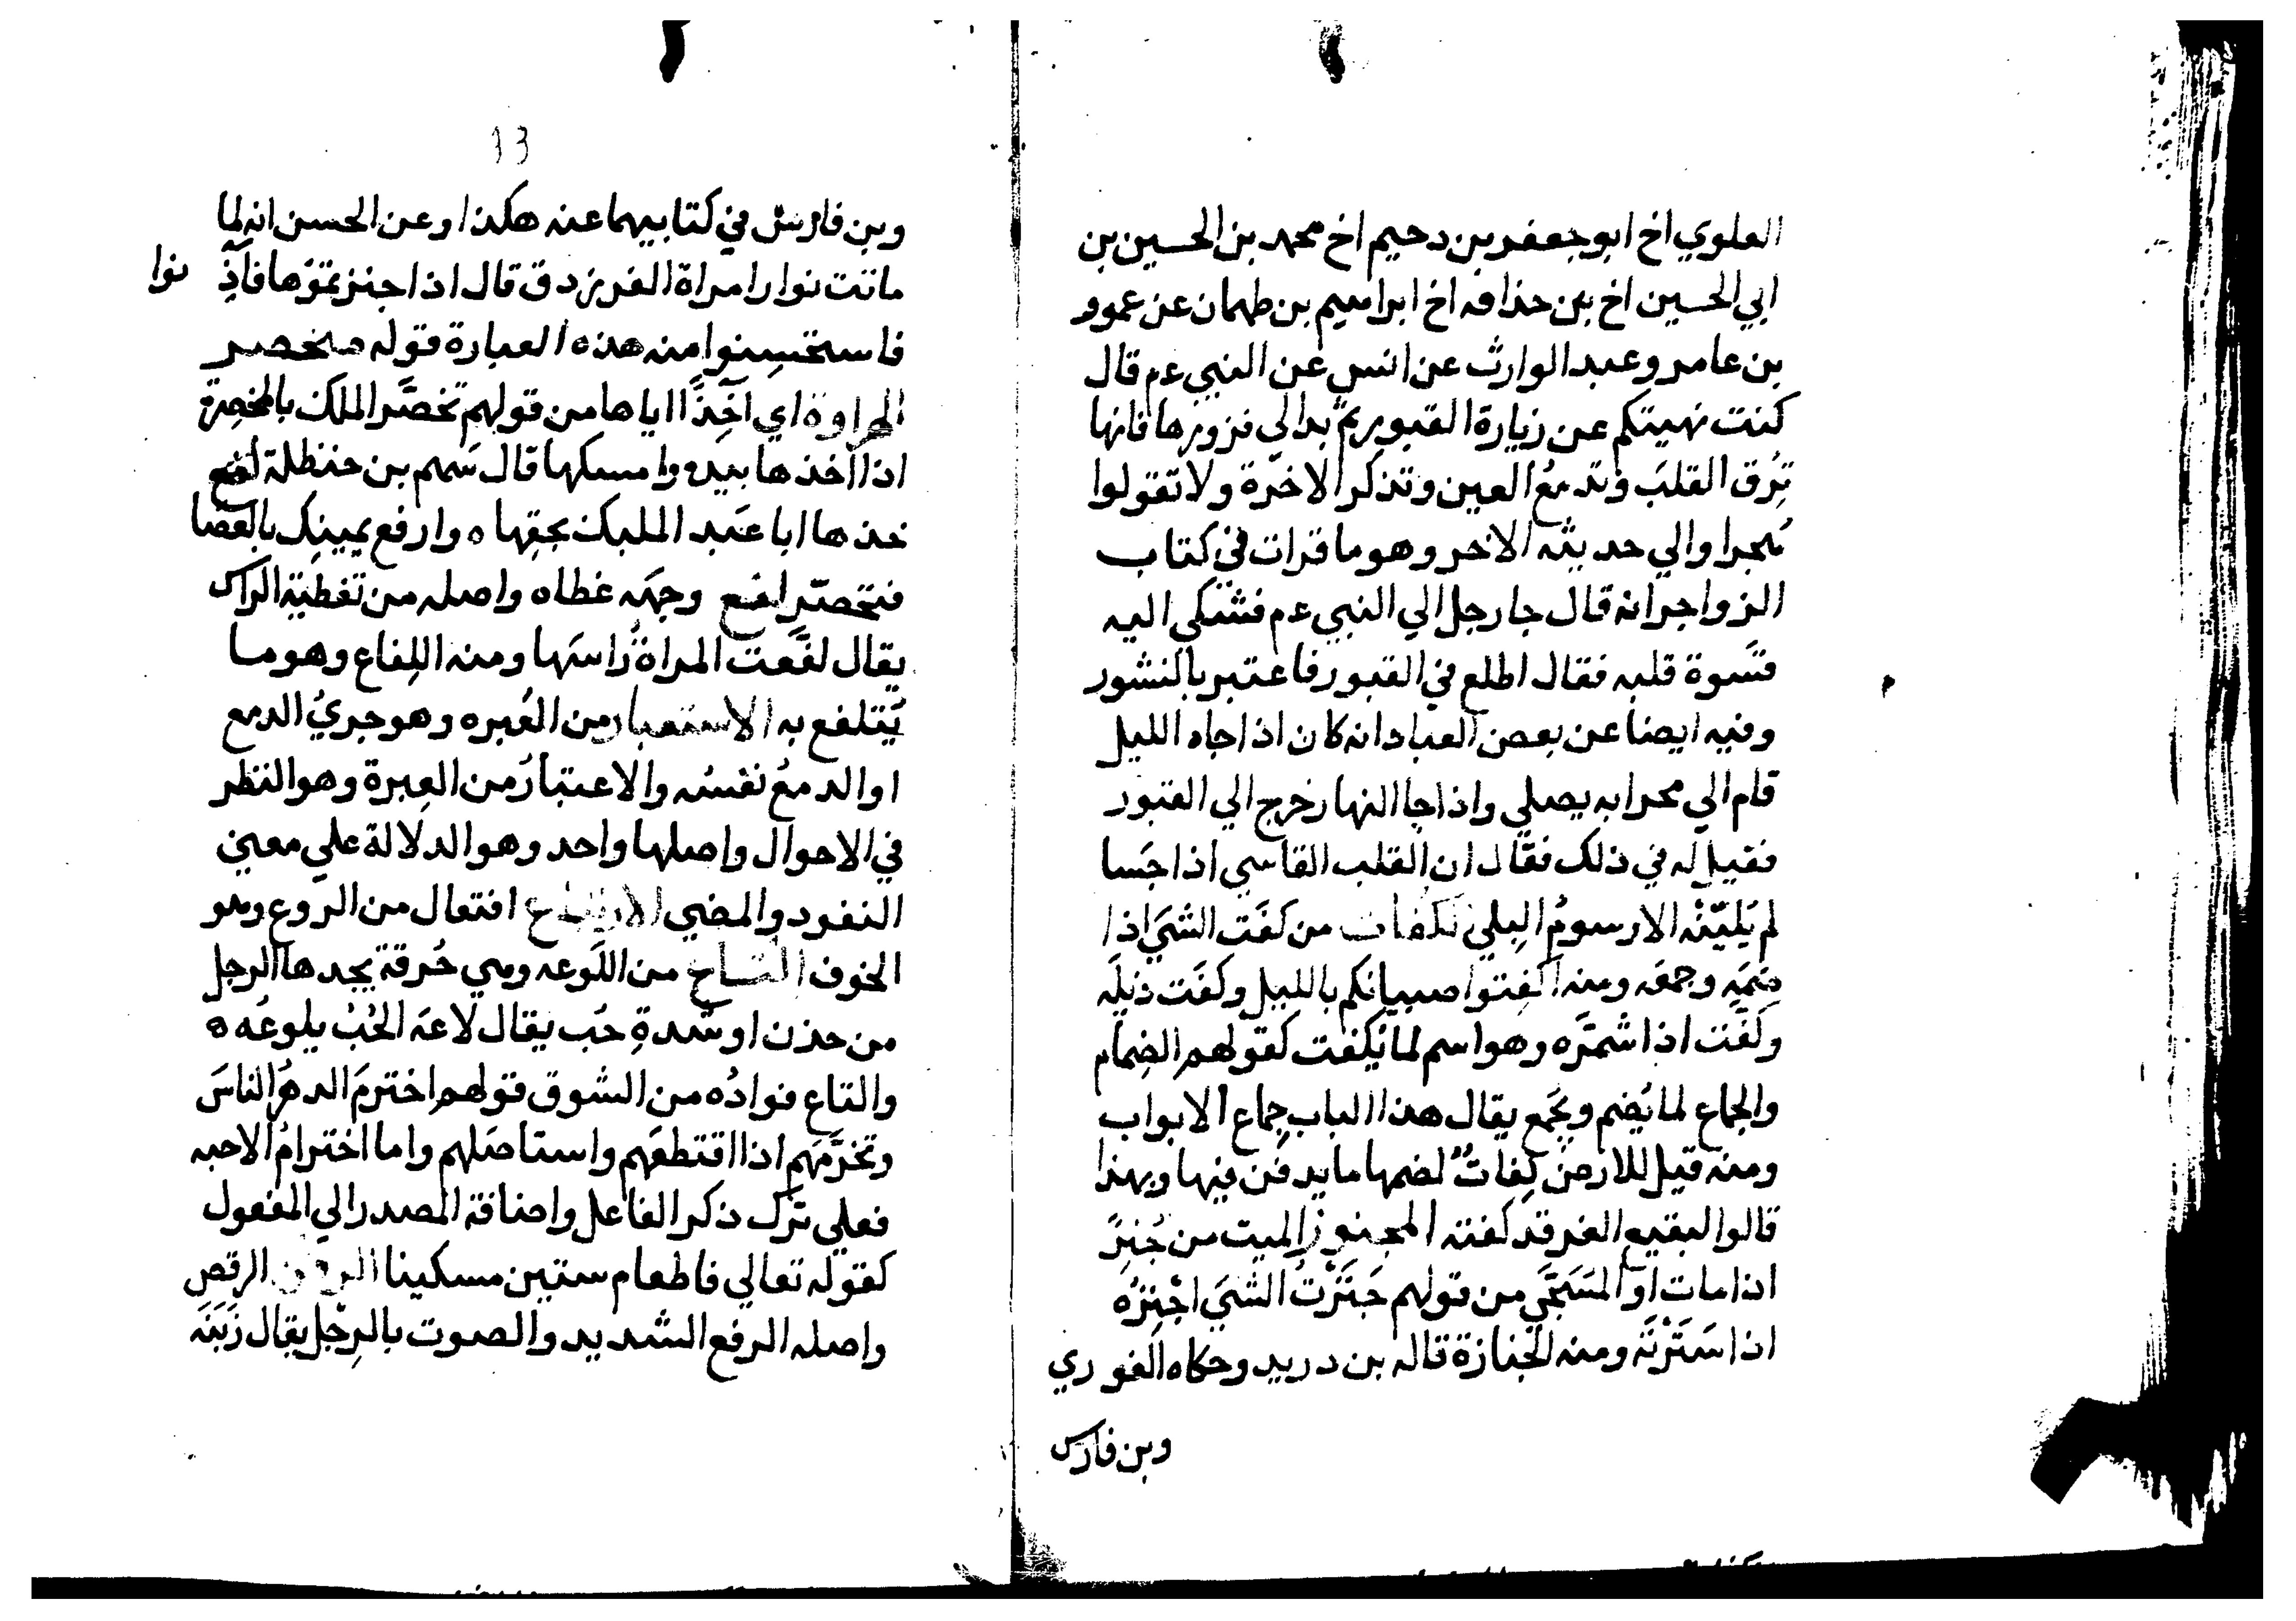 العلوي اخ ابو جعفر بن دحيم اخ محمد بن الحسين بن
ابي الحسين اخ بن حذافه اخ ابراهيم بن طهمان عن عمرو
بن عامر وعبد الوارث عن انس عن النبي ءم قال
كنت نهيتكم عن زيارة القبور ثم بدا لي فزوروها فانها
تُرِق القلبَ وتدمعُ العين وتذكر الاخرة ولا تقولوا
هُجرا والي حديثه الاخر وهو ما قرات في كتاب
الزواجر انه قال جا رجل الي النبي ءم فشكي اليه
قَسوة قلبه فقال اطلع في القبور فاعتبر بالنشور
وفيه ايضا عن بعض العباد انه كان اذا جاه الليل
قام الي محرابه يصلي واذا جا النهار خرج الي القبور
فقيل له في ذلك فقال ان القلب القاسي اذا جَسا
لم يَلَيّنْه الا رسومُ البِلي الكفات من كَفَت الشيَ اذا
ضمَه وجمعَه ومنه اكفِتوا صبيانكم بالليل وكفَت ذيلَه
وكفّت اذا شمَّره وهو اسم لما يُكفَت كقولهم الضِمام
والجماع لما يُضم ويُجمع يقال هذا الباب جماع الابواب
ومنه قيل للارض كِفاتٌ لضمها ما يدفن فيها وبهذا
قالوا لبقيع الغرقد كفتة المجنوز الميت من جُنِزَ
اذا مات او المُسَجَّي من قولهم جَنَزْتُ الشيَ اجْنِزُه
اذا سَتَرْتَه ومنه الجَنازة قاله بن دريد وحكاه الغوري
وبن فارس
13
وبن فارس في كتابيهما عنه هكذا وعن الحسن انه لما
ماتت نوار امراة الفرزدق قال اذا جنزتموها فآذِ نوا
فاستحسِنوا منه هذه العبارة قوله متخصر
الهراوة اي آخِذًا اياها من قولهم تخصَّر الملك بالمخصرة
اذا اخذها بيده وامسكها قال سَهم بن حنظلة لفع
خذها ابا عبد المليك بحقِها ه وارفع يمينِك بالعَصا
فتخصّرِ لفع وجهَه غطاه واصله من تغطية الراس
يقال لفَّعت المراةُ راسَها ومنه اللِفاع وهو ما
يُتلفع به الاستعبار من العَبره وهو جريُ الدمع
او الدمعُ نفسُه والاعتبارُ من العِبرة وهو النظر
في الاحوال واصلها واحد وهو الدلالة علي معني
النفود والمضي الارتياع افتعال من الروع وهو
الخوف التاع من اللَوعه وهي حُرقة يجدها الرجل
من حزن او شدةِ حُب يقال لاعَه الحُبُ يلوعُه ه
والتاع فوادُه من الشوق قولهم اخترمَ الدهرُ الناسَ
وتخرَّمَهم اذا اقتطعَهم واستاصَلهم واما اخترامُ الاحبه
فعلي ترك ذكر الفاعل واضافة المصدر الي المفعول
كقوله تعالي فاطعام ستين مسكينا الرقص
واصله الرفع الشديد والصوت بالرِجل يقال زَبَنَه